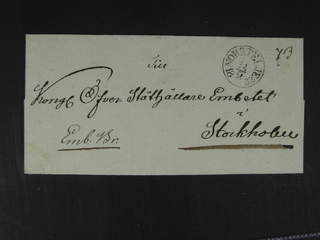 NORRTELJE
Till
Kongl Öfver Ståthållare Embetet
i
Stockholm
Emb. Br.